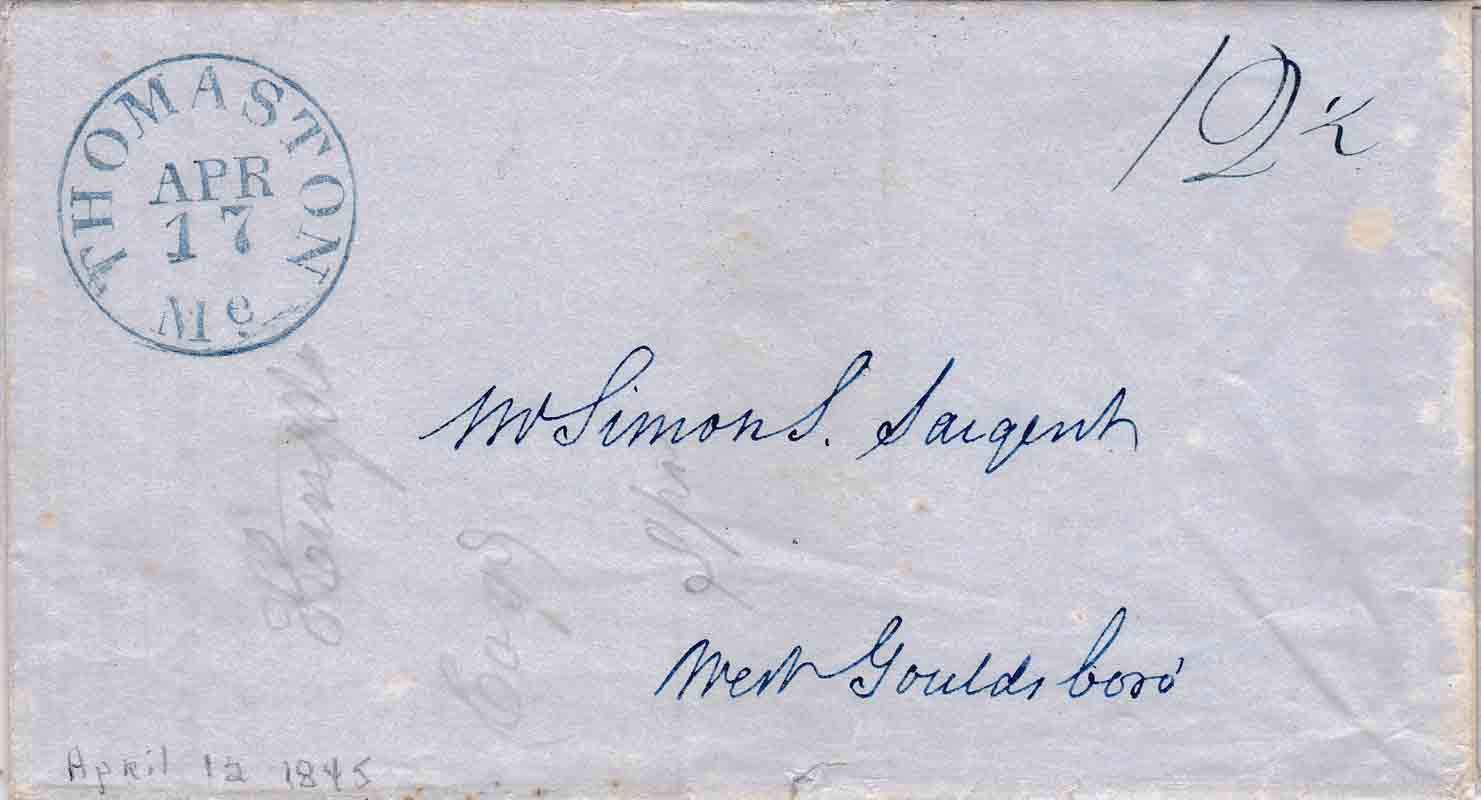 THOMASTON
APR
17
Me
12½
Mr Simon S. Sargent
West Gouldsboro'
April 12 1845